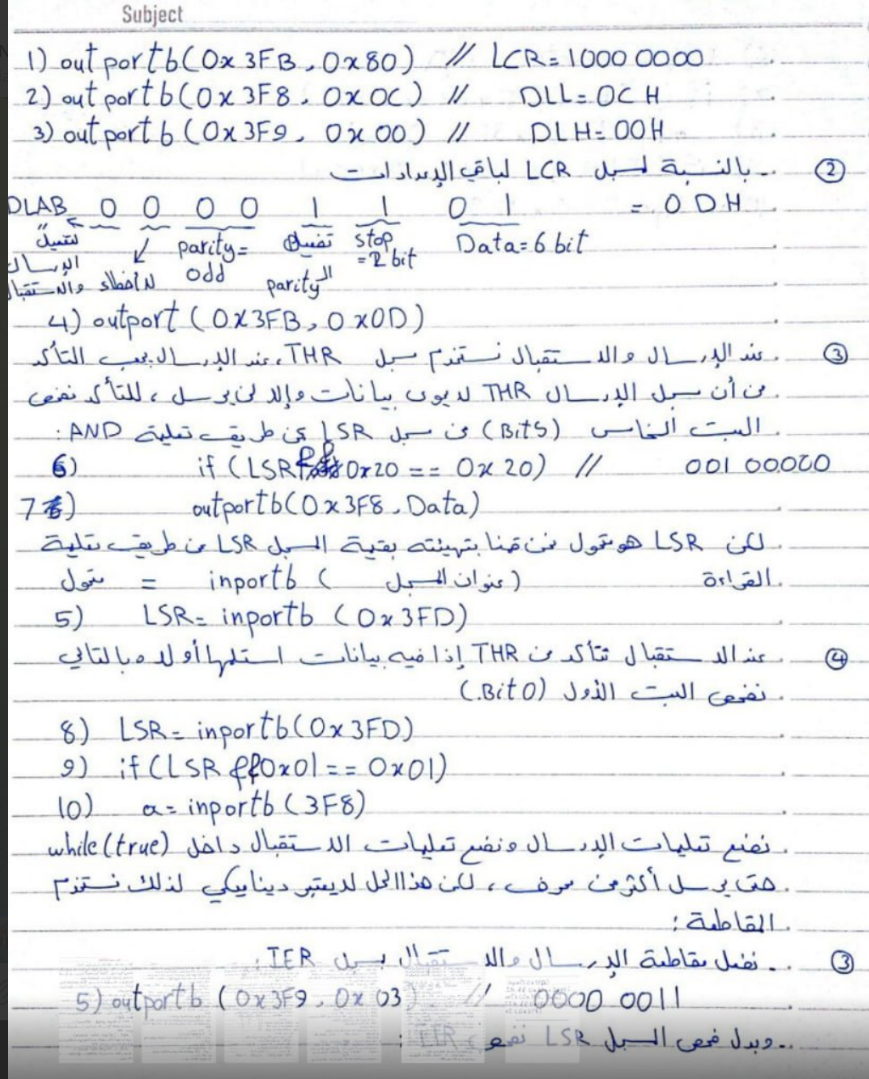 Subject
1) outportb(0x3FB, 0x80) // LCR= 1000 0000
2) outportb(0x3F8, 0x0C) // DLL= 0C H
3) outportb(0x3F9, 0x00) // DLH= 00H
② بالنسبة لسجل LCR لباقي الإعدادات
DLAB 0 0 0 0 1 1 0 1 = 0DH
لتفعيل parity= تفعيل stop Data= 6 bit
الإرسال odd ال parity = 2 bit
والاستقبال لأخطاء
4) outport (0X3FB, 0X0D)
③ عند الإرسال والاستقبال نستخدم سجل THR، عند الإرسال يجب التأكد
من أن سجل الإرسال THR لا يوجد بيانات وإلا لن يرسل، للتأكد نفحص
البت الخامس (Bit5) من سجل LSR عن طريق تعليمة AND:
6) if (LSR && 0x20 == 0x20) // 001 00000
7) outportb(0x3F8, Data)
لكن LSR هو متحول نحن قمنا بتهيئته بقيمة السجل LSR عن طريق تعليمة
القراءة (عنوان السجل) inportb = متحول
5) LSR= inportb (0x3FD)
④ عند الاستقبال نتأكد من THR إذا فيه بيانات استلمها أو لا وبالتالي
نفحص البت الأول (Bit 0).
8) LSR= inportb(0x3FD)
9) if(LSR &&0x01 == 0x01)
10) a= inportb (3F8)
نضع تعليمات الإرسال ونضع تعليمات الاستقبال داخل while(true)
حتى يرسل أكثر من حرف، لكن هذا الحل لا يعتبر ديناميكي لذلك نستخدم
المقاطعة:
③ نفعل مقاطعة الإرسال والاستقبال بسجل IER:
5) outportb (0x3F9, 0x 03) // 0000 0011
وبدل فحص السجل LSR نفحص IIR: